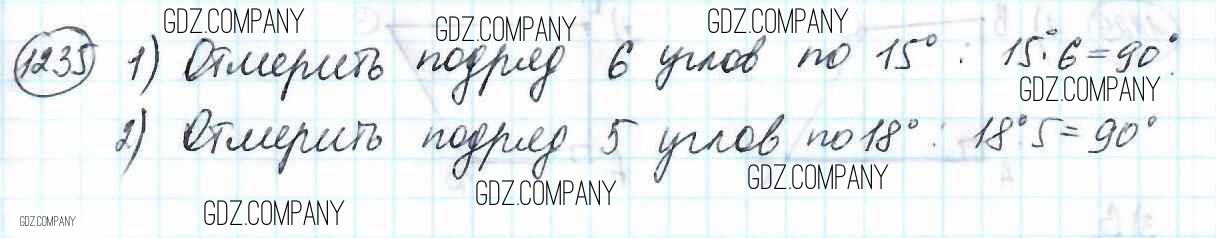 GDZ.COMPANY GDZ.COMPANY GDZ.COMPANY
1235 1) Отмерить подряд 6 углов по 15° : 15°·6=90°.
GDZ.COMPANY
2) Отмерить подряд 5 углов по 18° : 18°·5=90°
GDZ.COMPANY GDZ.COMPANY
GDZ.COMPANY GDZ.COMPANY